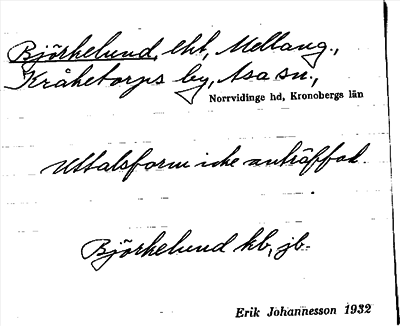 Björkelund, lht, Mellang.,
Kråketorps by, Asa sn.,
Norrvidinge hd, Kronobergs län
Uttalsform icke anträffad.
Björkelund kb, jb.
Erik Johannesson 1932